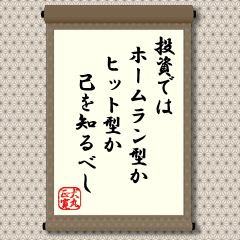 投資では
ホームラン型か
ヒット型か
己を知るべし